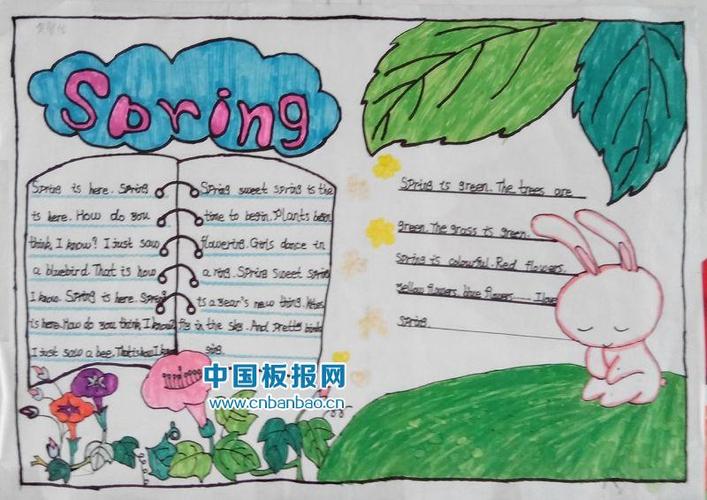 Spring
Spring is here. Spring
is here. How do you
think, I know? I just saw
a bluebird. That is how
I know. Spring is here. Spring
is here. How do you think, I know?
I just saw a bee. That is how I know
Spring sweet spring is the
time to begin. Plants begin
flowering. Girls dance in
a ring. Spring sweet spring
is a year's new thing.
fly in the sky. And pretty birds
sing.
Spring is green. The trees are
green. The grass is green.
Spring is colourful. Red flowers,
yellow flowers, blue flowers...... I love
spring.
中国板报网
www.cnbanbao.cn